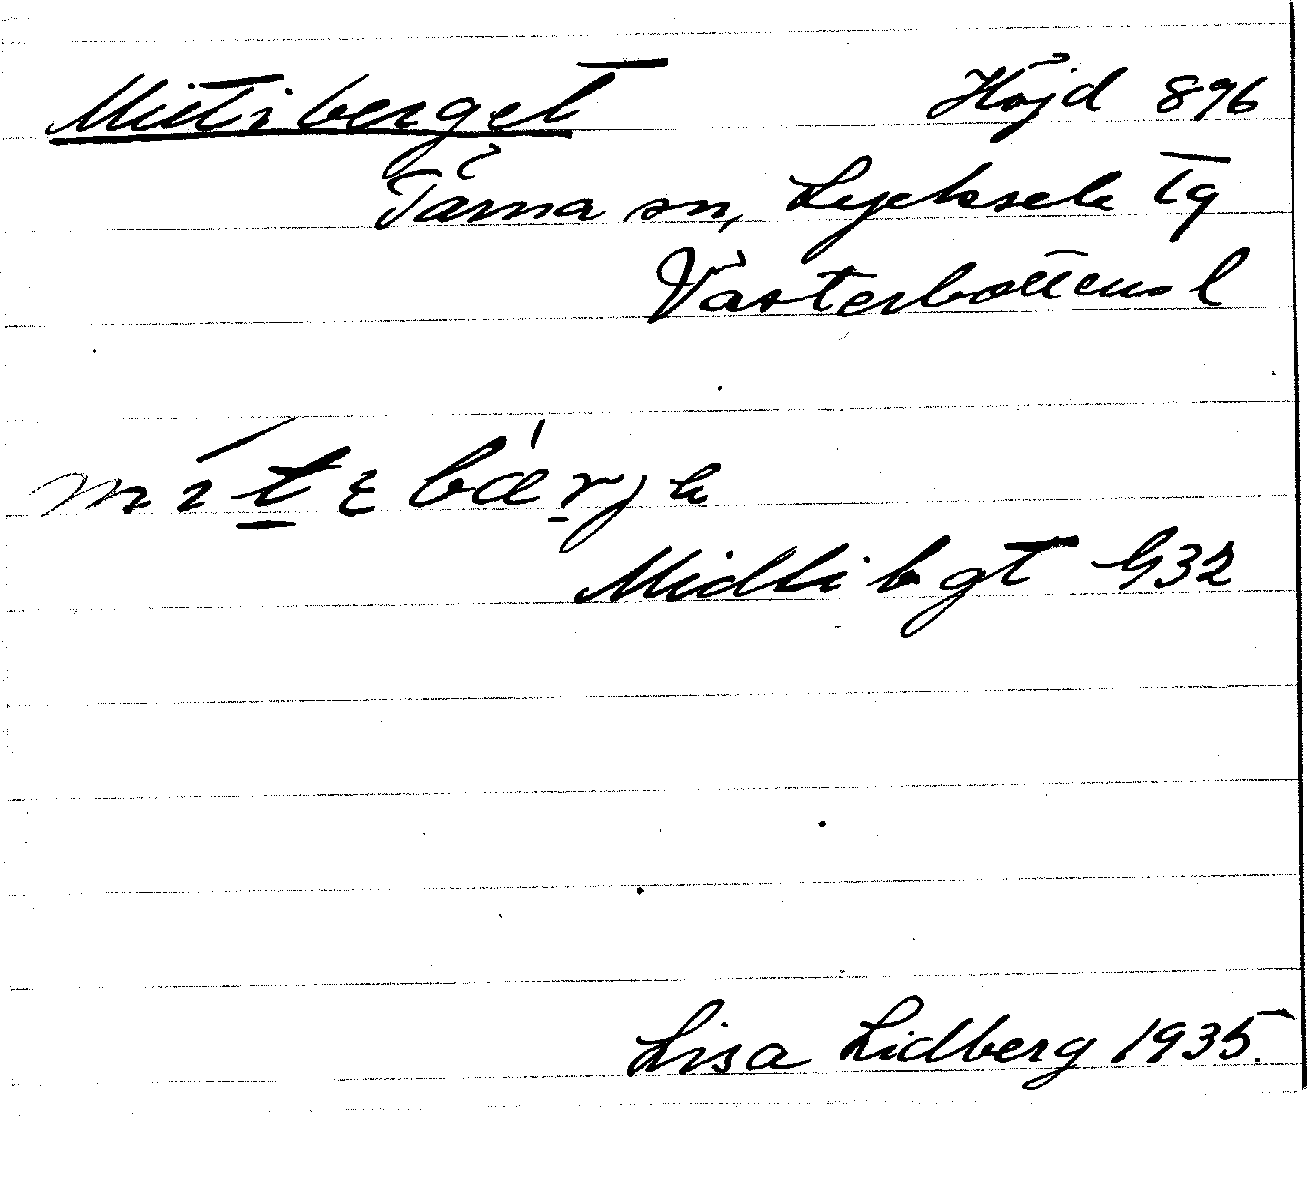 Mittiberget Höjd 896
Tärna sn, Lycksele Tg
Västerbottens l
Midtli bgt G32
Lisa Lidberg 1935.